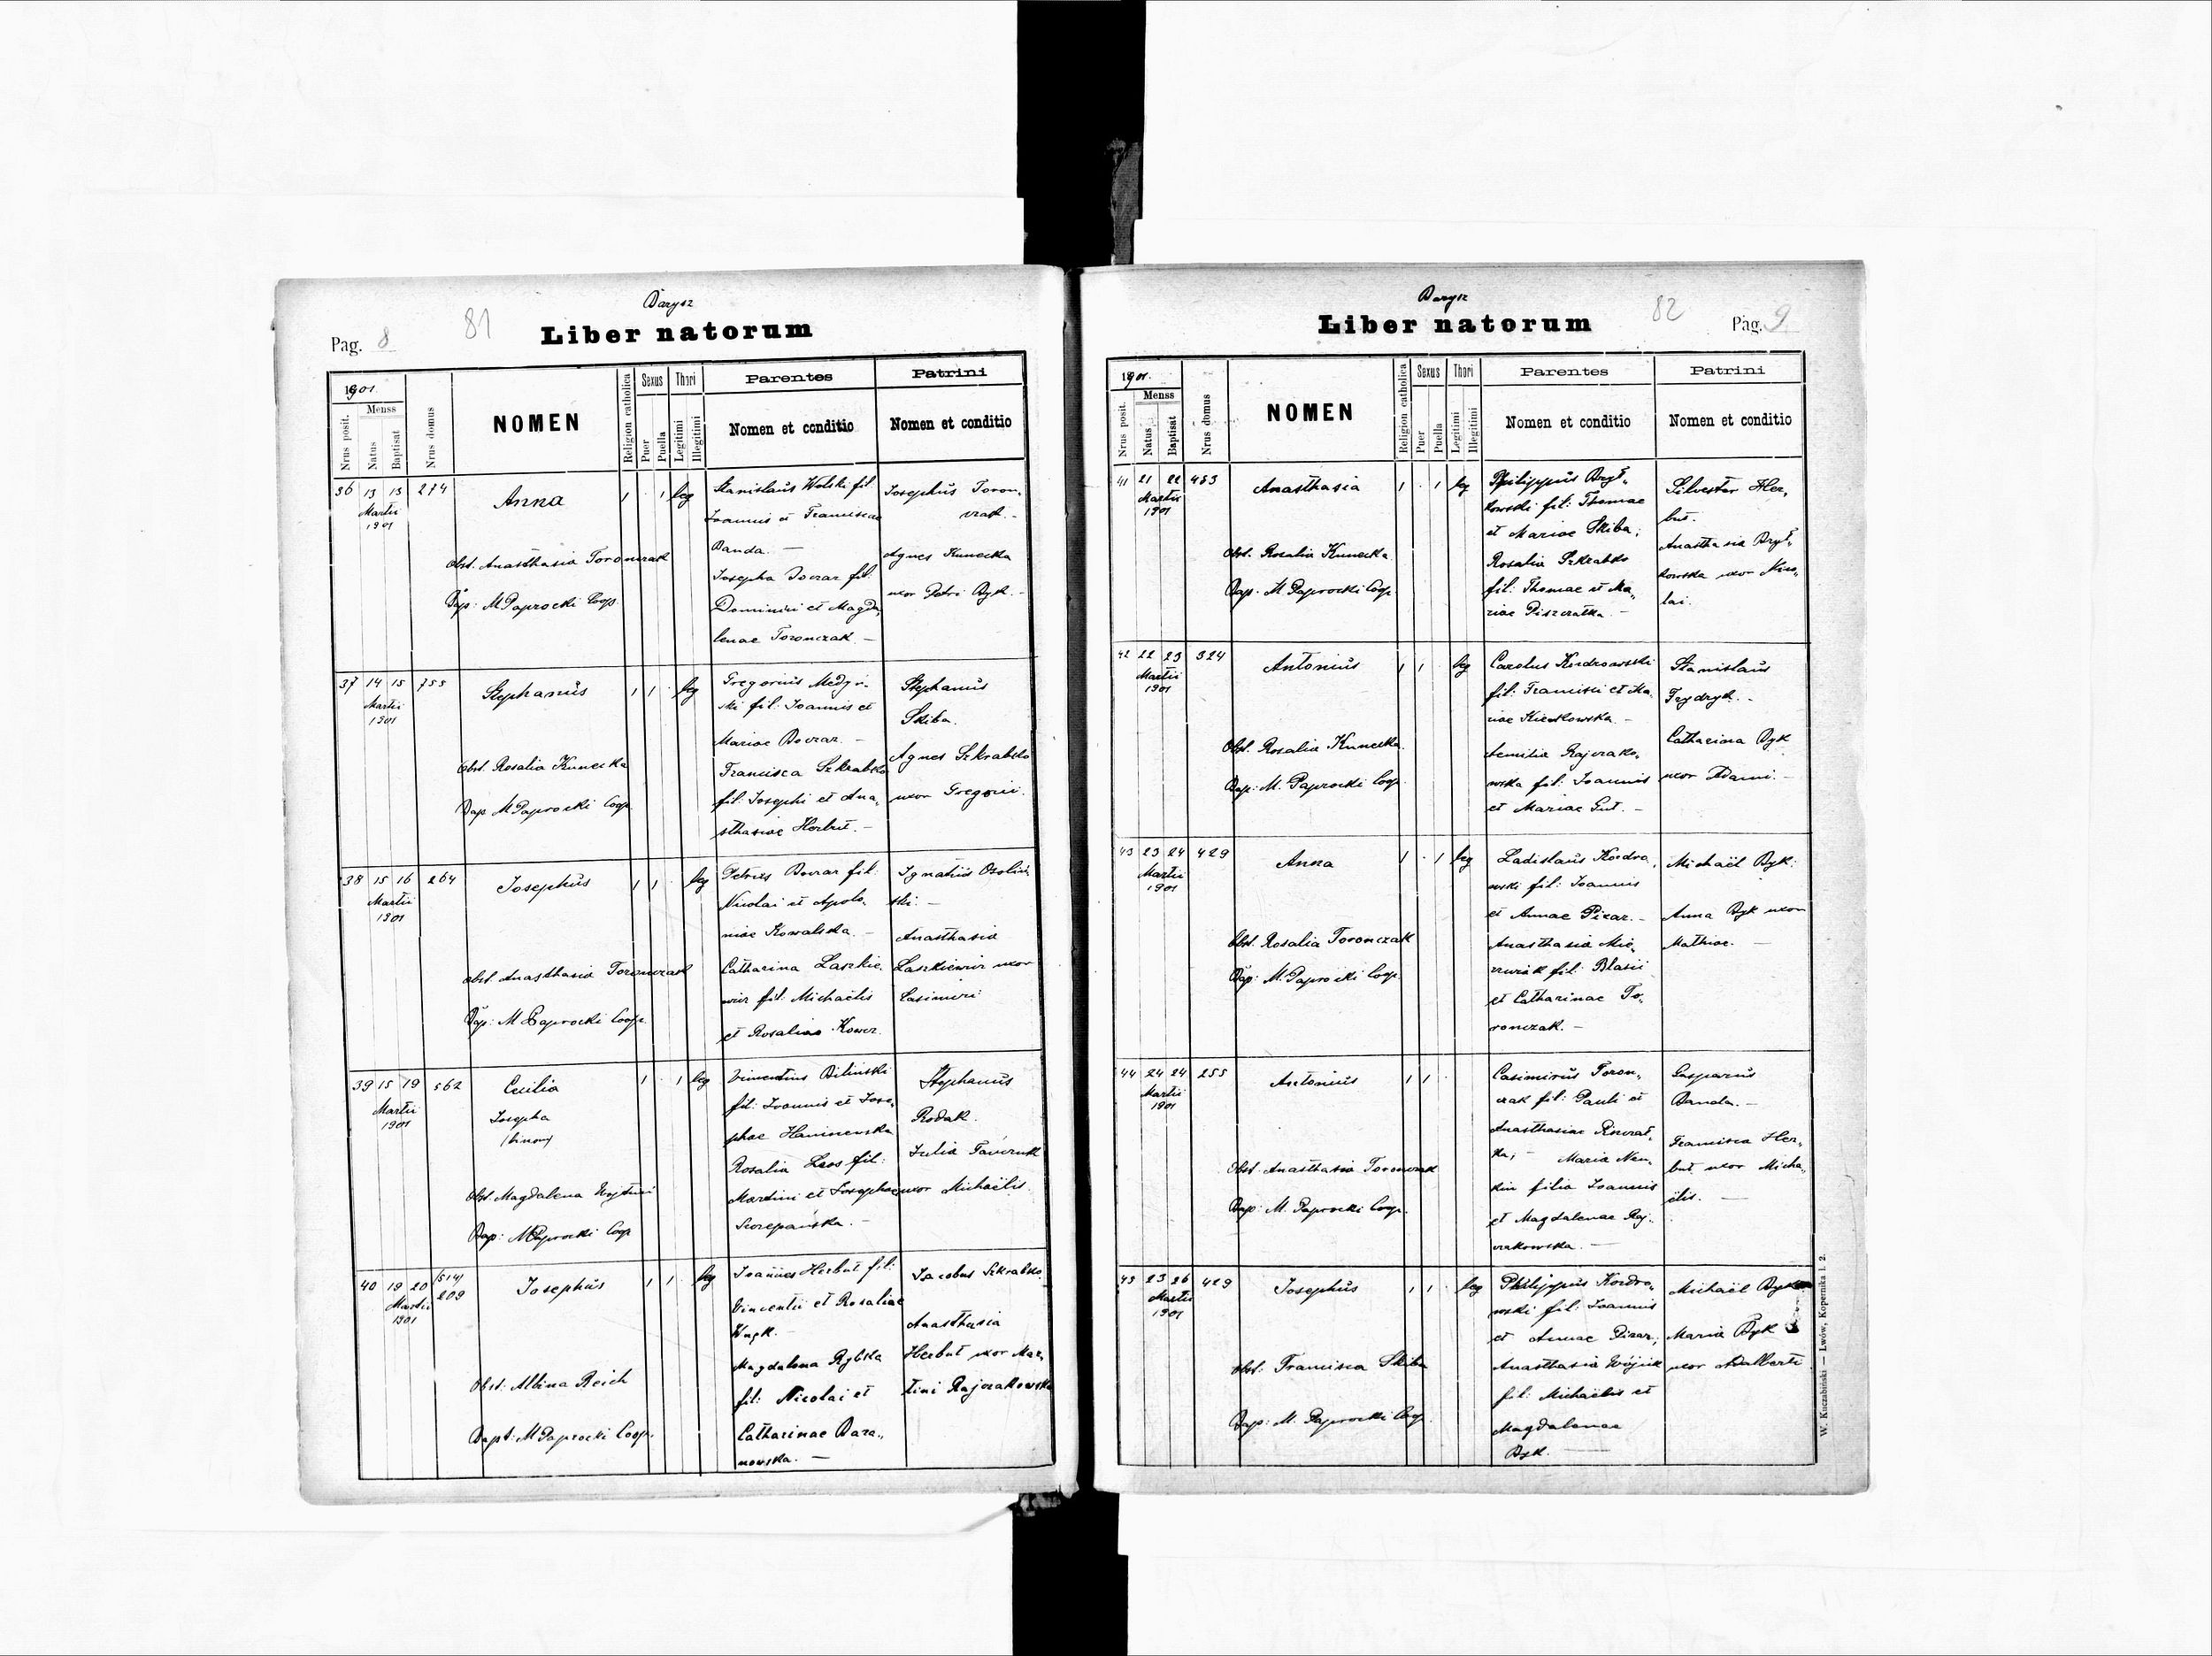 Barysz
Pag. 8
81
Liber natorum
1901.
Nrus posit.
Menss
Natus
Baptisat
Nrus domus
NOMEN
Religion catholica
Sexus
Puer
Puella
Thori
Legitimi
Illegitimi
Parentes
Nomen et conditio
Patrini
Nomen et conditio
36 13 15 274
Martii
1901
Anna
1 · 1 leg
Obst. Anasthasia Toronczak
Bap: M Paprocki Coop.
Stanislaus Wolski fil.
Joannis et Franciscae
Banda. —
Josepha Boczar fil.
Dominici et Magda,
lenae Toronczak —
Josephus Toron,
czak. -
Agnes Kunecka
uxor Petri Byk. -
37 14 15 755
Martii
1901
Stephanus
1 1 · leg
Obst. Rosalia Kunecka
Bap. M Paprocki Coop
Gregorius Medyń-
ski fil. Joannis et
Mariae Boczar. —
Francisca Szkrabko
fil. Josephi et Ana,
sthasiae Herbut. —
Stephanus
Skiba.
Agnes Szkrabko
uxor Gregorii.
38 15 16 264
Martii
1901
Josephus
1 1 · leg
Obst. Anasthasia Toronczak
Bap: M Paprocki Coop.
Petrus Boczar fil.
Nicolai et Apolo,
niae Kowalska. —
Catharina Laszkie,
wicz fil. Michaëlis
et Rosaliae Kowcz.
Ignatius Ozoliń,
ski. —
Anasthasia
Laszkiewicz uxor
Casimiri
39 15 19 562
Martii
1901
Cecilia
Josepha
/binom/
1 · 1 leg
Obst. Magdalena
Bap: M Paprocki Coop
Vincentius Biliński
fil: Joannis et Jose,
phae
Rosalia Laos fil:
Martini et Josephae
Szczepańska. —
Stephanus
Rodak.
Julia
uxor Michaëlis.
40 19 20 /514/
209
Martii
1901
Josephus
1 1 · leg
Obst: Albina Reich
Bapt: M Paprocki Coop.
Joannes Herbut fil:
Vincentii et Rosaliae
Magdalena Rybka
fil: Nicolai et
Catharinae Bara,,
nowska. —
Jacobus Szkrabko
Anasthasia
Herbut uxor Mar,
tini Rajczakowska
Barysz
Liber natorum
82
Pag. 9
1901.
Nrus posit.
Menss
Natus
Baptisat
Nrus domus
NOMEN
Religion catholica
Sexus
Puer
Puella
Thori
Legitimi
Illegitimi
Parentes
Nomen et conditio
Patrini
Nomen et conditio
41 21 22 453
Martii
1901
Anasthasia
1 · 1 leg
Obst. Rosalia Kunecka
Bap. M Paprocki Coop
Philippus Brył,
kowski fil: Thomae
et Mariae Skiba;
Rosalia Szkrabko
fil: Thomae et Ma,
riae Piszczatka. —
Silvester Her,
but.
Anasthasia Brył,
kowska uxor Nico,
lai.
42 22 23 324
Martii
1901
Antonius
1 1 · leg
Obst. Rosalia Kunecka.
Bap: M. Paprocki Coop.
Carolus Kordrowski
fil: Francisci et Ma,
riae —
Aemilia Rajczako,
wska fil. Joannis
et Mariae Gut. —
Stanislaus
Frydryk. -
Catharina Byk
uxor Adami. —
43 23 24 429
Martii
1901
Anna
1 · 1 leg
Obst. Rosalia Toronczak
Bap: M. Paprocki Coop.
Ladislaus Kordro,
wski fil: Joannis
et Annae Pisar. —
Anasthasia Mie,
fil: Blasii
et Catharinae To,
ronczak. —
Michaël Byk.
Anna Byk uxor
Mathiae. —
44 24 24 255
Martii
1901
Antonius
1 1 ·
Obst. Anasthasia Toronczak
Bap: M. Paprocki Coop.
Casimirus Toron,
czak fil: Pauli et
Anasthasiae Piszczat,
ka; — Maria
filia Joannis
et Magdalenae Raj,
czakowska. —
Gasparus
Banda. —
Francisca Her,
but uxor Micha,
ëlis. —
45 25 26 429
Martii
1901
Josephus
1 1 · leg
Obst: Francisca Skiba
Bap: M. Paprocki Coop.
Philippus Kordro,
wski fil: Joannis
et Annae Pisar;
Anasthasia Wójcik
fil: Michaëlis et
Magdalenae
Byk. —
Michaël Byk
Maria Byk
uxor Adalberti
W. Kuczabiński — Lwów, Kopernika l. 2.